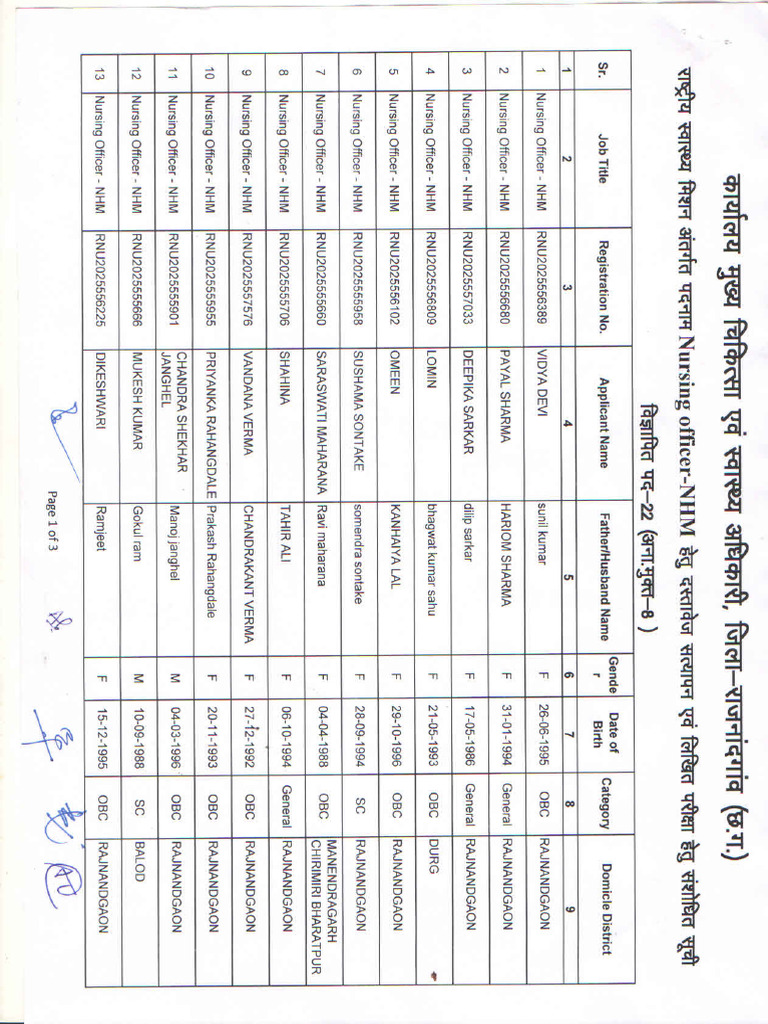 कार्यालय मुख्य चिकित्सा एवं स्वास्थ्य अधिकारी, जिला–राजनांदगांव (छ.ग.)
राष्ट्रीय स्वास्थ्य मिशन अंतर्गत पदनाम Nursing officer-NHM हेतु दस्तावेज सत्यापन एवं लिखित परीक्षा हेतु संशोधित सूची
विज्ञापित पद–22 (अना.मुक्त–8 )
Sr. Job Title Registration No. Applicant Name Father/Husband Name Gender Date of Birth Category Domicile District
1 2 3 4 5 6 7 8 9
1 Nursing Officer - NHM RNU2025556389 VIDYA DEVI sunil kumar F 26-06-1995 OBC RAJNANDGAON
2 Nursing Officer - NHM RNU2025556680 PAYAL SHARMA HARIOM SHARMA F 31-01-1994 General RAJNANDGAON
3 Nursing Officer - NHM RNU2025557033 DEEPIKA SARKAR dilip sarkar F 17-05-1986 General RAJNANDGAON
4 Nursing Officer - NHM RNU2025556809 LOMIN bhagwat kumar sahu F 21-05-1993 OBC DURG
5 Nursing Officer - NHM RNU2025556102 OMEEN KANHAIYA LAL F 29-10-1996 OBC RAJNANDGAON
6 Nursing Officer - NHM RNU2025555958 SUSHAMA SONTAKE somendra sontake F 28-09-1994 SC RAJNANDGAON
7 Nursing Officer - NHM RNU2025555660 SARASWATI MAHARANA Ravi maharana F 04-04-1988 OBC MANENDRAGARH CHIRIMIRI BHARATPUR
8 Nursing Officer - NHM RNU2025555706 SHAHINA TAHIR ALI F 06-10-1994 General RAJNANDGAON
9 Nursing Officer - NHM RNU2025557576 VANDANA VERMA CHANDRAKANT VERMA F 27-12-1992 OBC RAJNANDGAON
10 Nursing Officer - NHM RNU2025555955 PRIYANKA RAHANGDALE Prakash Rahangdale F 20-11-1993 OBC RAJNANDGAON
11 Nursing Officer - NHM RNU2025555901 CHANDRA SHEKHAR JANGHEL Manoj janghel M 04-03-1996 OBC RAJNANDGAON
12 Nursing Officer - NHM RNU2025555666 MUKESH KUMAR Gokul ram M 10-09-1988 SC BALOD
13 Nursing Officer - NHM RNU2025556225 DIKESHWARI Ramjeet F 15-12-1995 OBC RAJNANDGAON
Page 1 of 3